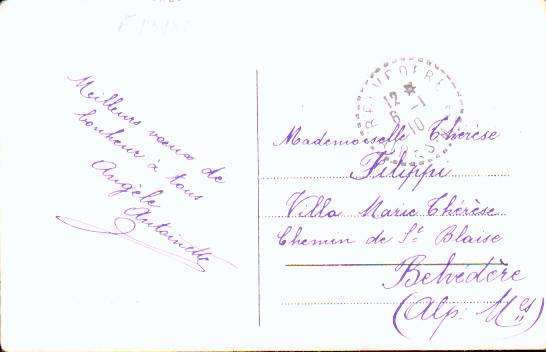 Meilleurs vœux de
bonheur à tous
Angèle
Antoinette
BELVEDERE
12
6 -1
10
Mademoiselle Thérèse
Filippi
Villa Marie Thérèse
Chemin de St Blaise
Belvédère
(Alp: Mes)